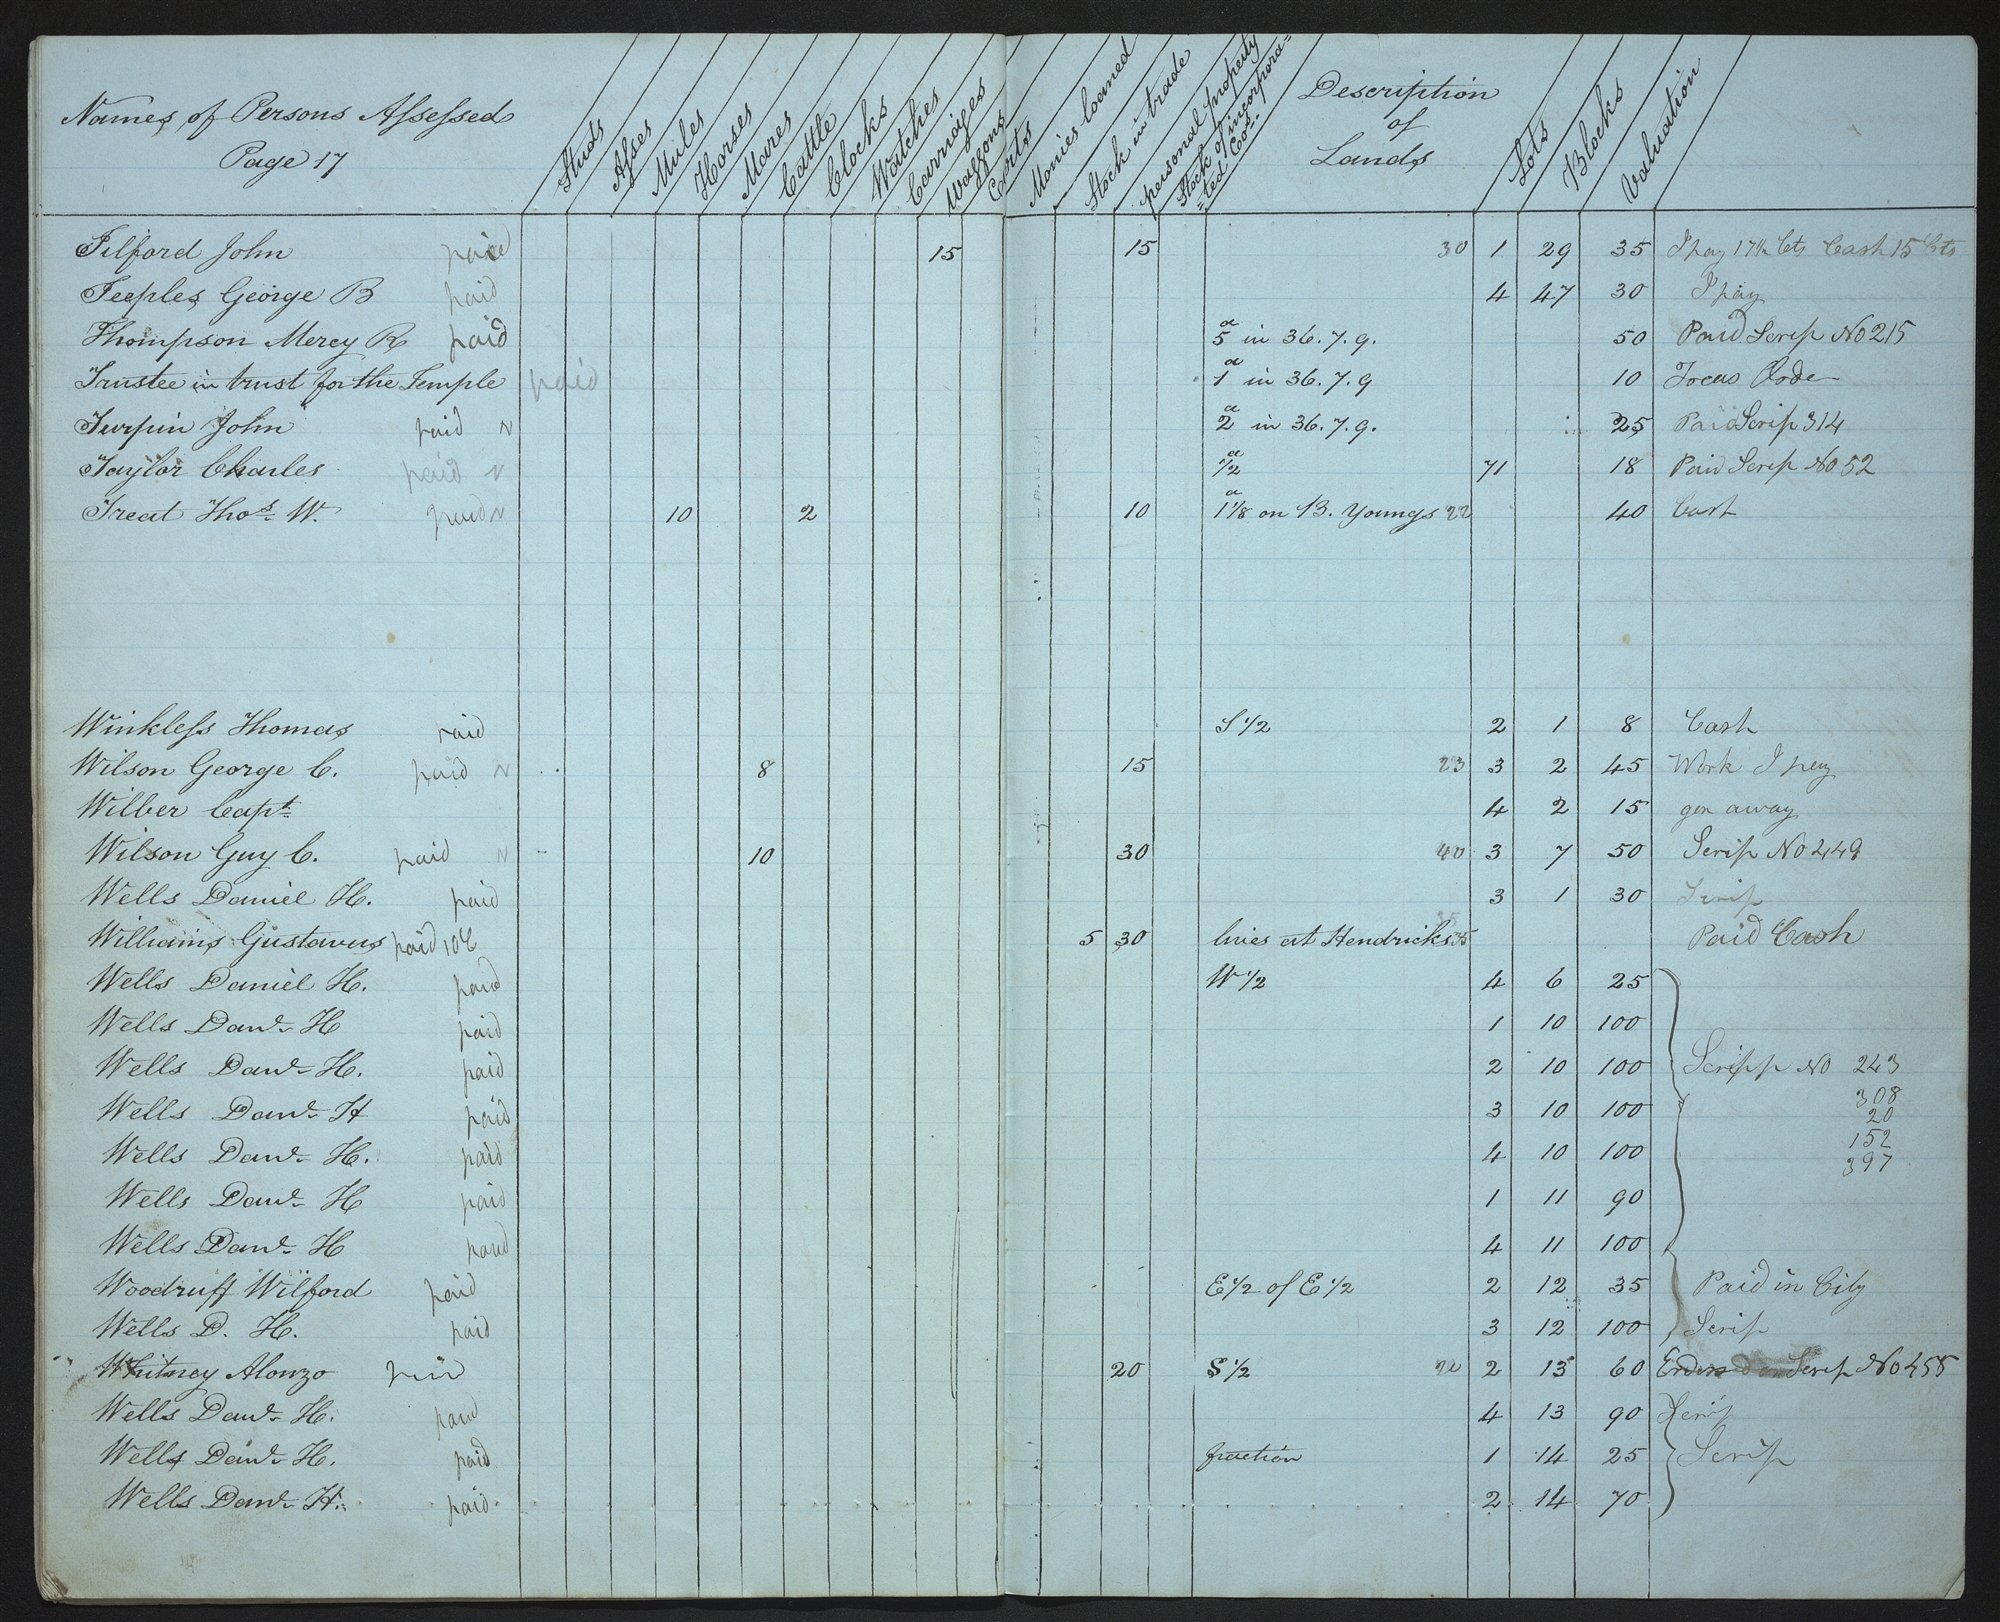 Names of Persons Assessed
Page 17
Studs Asses Mules Horses Mares Cattle Clocks Watches Carriages Waggons Carts Monies loaned Stock in trade personal property Stock of incorpora=
=ted Cos. Description of Lands Lots Blocks Valuation
Tilford John paid 15 15 30 1 29 35 I pay 17½ Cts Cash 15 Cts
Teeples George B paid 4 47 30 I pay
Thompson Mercy R paid 5 a in 36. 7. 9. 50 Paid Scrip No 215
Trustee in trust for the Temple paid 1 a in 36. 7. 9 10
Turpin John paid N 2 a in 36. 7. 9. 25 Paid Scrip 314
Taylor Charles paid N ½ a 71 18 Paid Scrip No 52
Treat Thos. W. paid N 10 2 10 1⅛ a on B. Youngs 22 40 Cash
Winkless Thomas paid S ½ 2 1 8 Cash
Wilson George C. paid N 8 15 23 3 2 45 Work I pay
Wilber Capt. 4 2 15 gon away
Wilson Guy C. paid N 10 30 40 3 7 50 Scrip No 449
Wells Daniel H. paid 3 1 30 Scrip
Williams Gustavus paid 10 C 5 30 lives at Hendricks 35 Paid Cash
Wells Daniel H. paid W ½ 4 6 25
Wells Danl. H paid 1 10 100
Wells Danl. H. paid 2 10 100 Scripp No 243
Wells Danl. H paid 3 10 100 308
20
Wells Danl. H. paid 4 10 100 152
397
Wells Danl. H paid 1 11 90
Wells Danl. H paid 4 11 100
Woodruff Wilford paid E ½ of E ½ 2 12 35 Paid in City
Wells D. H. paid 3 12 100 Scrip
Whitney Alonzo paid 20 S ½ 20 2 13 60 Endorsed on Scrip No 455
Wells Danl. H. paid 4 13 90 Scrip
Wells Danl. H. paid fraction 1 14 25 Scrip
Wells Danl. H. paid 2 14 70